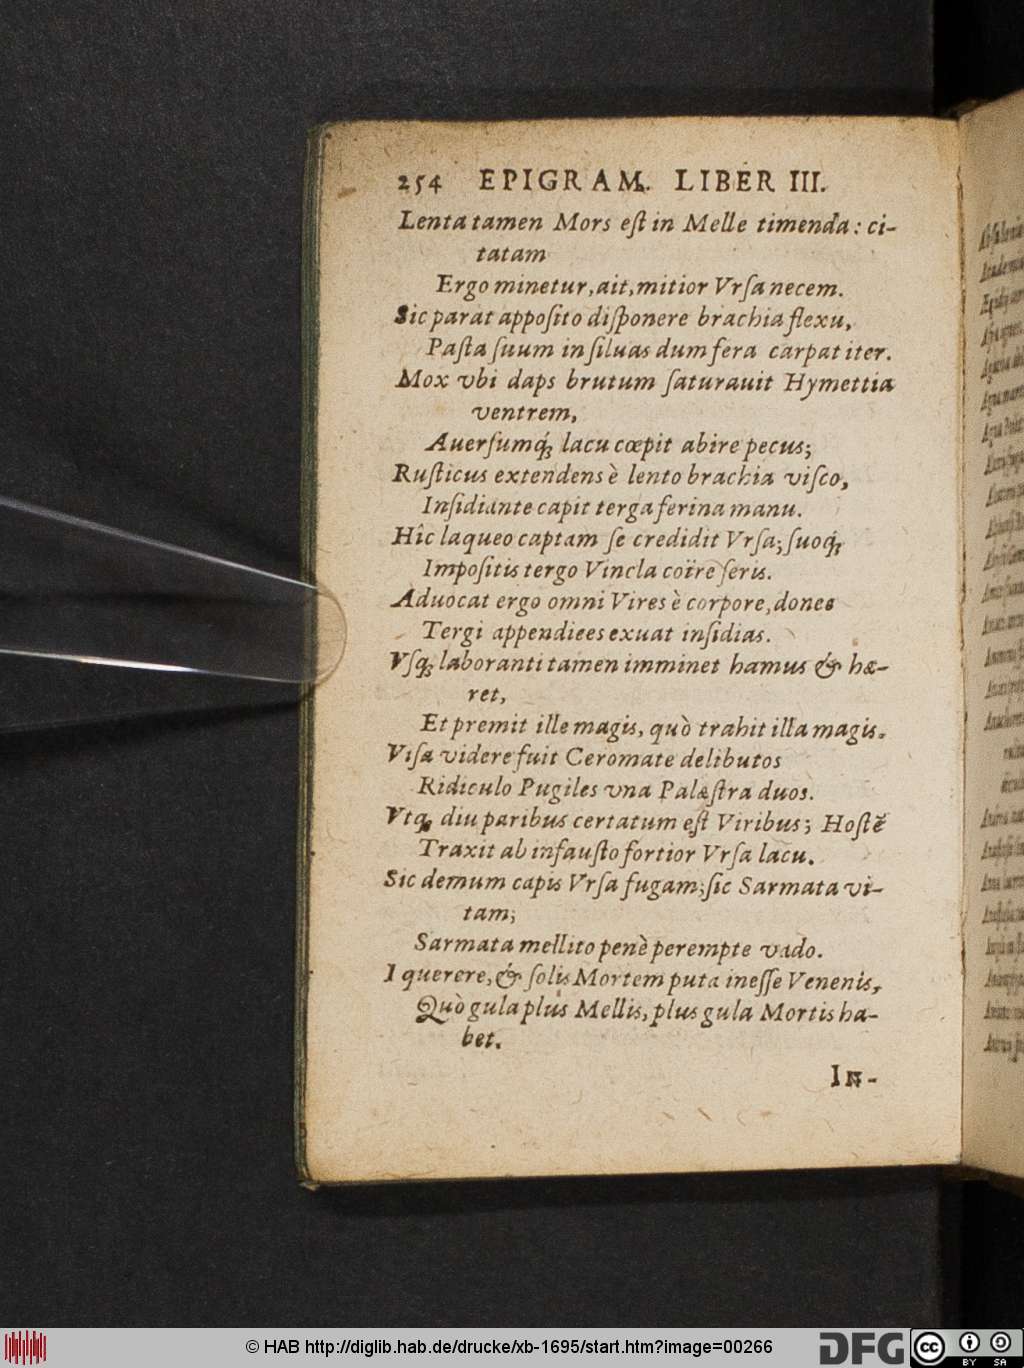 254 EPIGRAM. LIBER III.
Lenta tamen Mors eſt in Melle timenda: ci-
tatam
Ergo minetur, ait, mitior Vrſa necem.
Sic parat appoſito diſponere brachia flexu,
Paſta ſuum in ſiluas dum fera carpat iter.
Mox vbi daps brutum ſaturauit Hymettia
ventrem,
Auerſumq́; lacu cœpit abire pecus;
Ruſticus extendens è lento brachia viſco,
Inſidiante capit terga ferina manu.
Hîc laqueo captam ſe credidit Vrſa; ſuoq́;
Impoſitis tergo Vincla coïre ſeris.
Aduocat ergo omni Vires è corpore, donec
Tergi appendices exuat inſidias.
Vſq́; laboranti tamen imminet hamus & hæ-
ret,
Et premit ille magis, quò trahit illa magis.
Viſa videre fuit Ceromate delibutos
Ridiculo Pugiles vna Palæſtra duos.
Vtq; diu paribus certatum eſt Viribus; Hoſtē
Traxit ab infauſto fortior Vrſa lacu.
Sic demum capis Vrſa fugam; ſic Sarmata vi-
tam;
Sarmata mellito penè perempte vado.
I querere, & ſolis Mortem puta ineſſe Venenis,
Quò gula plus Mellis, plus gula Mortis ha-
bet.
In-
© HAB http://diglib.hab.de/drucke/xb-1695/start.htm?image=00266
DFG
cc BY SA